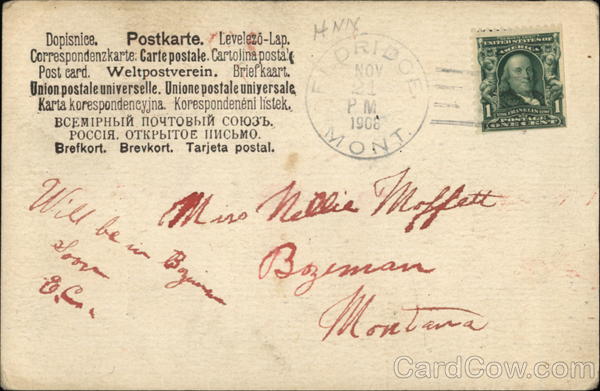 Dopisnice. Postkarte. Levelező-Lap.
Correspondenzkarte. Carte postale. Cartolina postale
Post card. Weltpostverein. Briefkaart.
Union postale universelle. Unione postale universale
Karta korespondencyjna. Korespondenéni lístek.
ВСЕМІРНЫЙ ПОЧТОВЫЙ СОЮЗЪ.
РОССІЯ. ОТКРЫТОЕ ПИСЬМО.
Brefkort. Brevkort. Tarjeta postal.
ELDRIDGE
NOV
21
P M
1908
MONT.
UNITED STATES OF
AMERICA
1 1
POSTAGE
ONE CENT
Miss Nellie Moffett
Bozeman
Montana
Will be in Bozeman
Soon
E.C.
CardCow.com